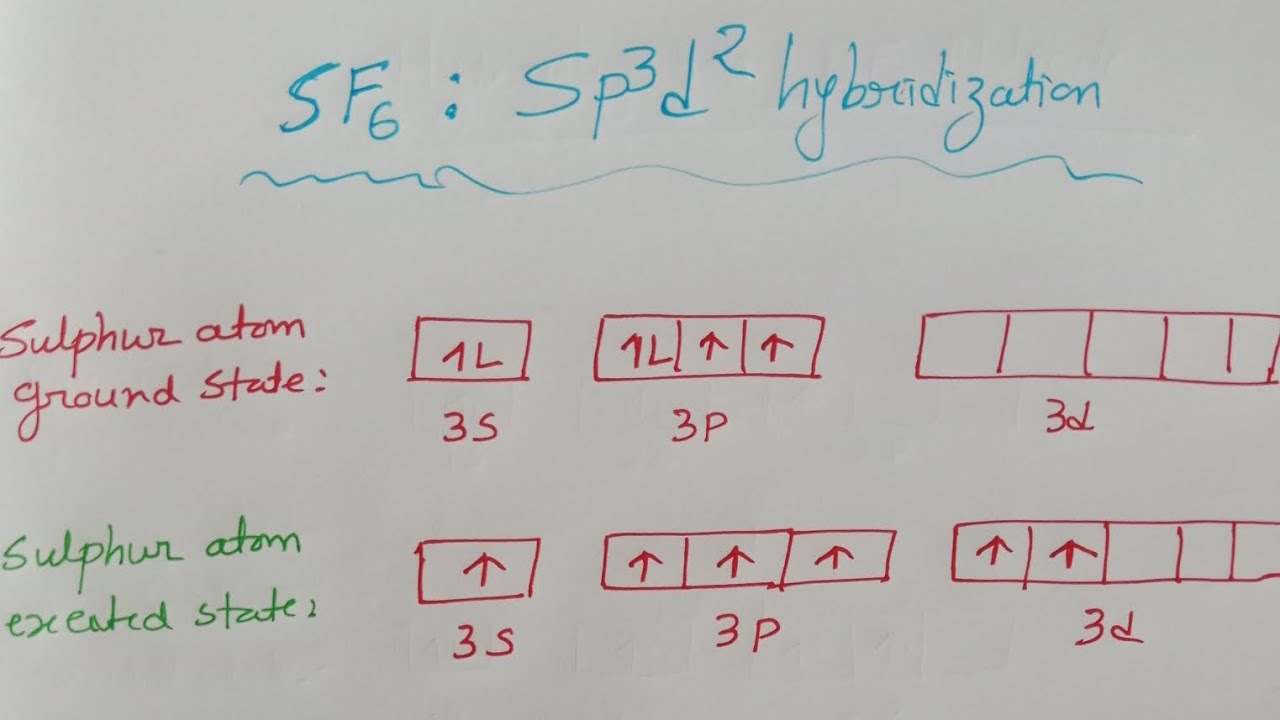 SF₆ : Sp³d² hybridization
Sulphur atom
ground state:
1L 1L ↑ ↑
3S 3P 3d
Sulphur atom
excited state:
↑ ↑ ↑ ↑ ↑ ↑
3S 3P 3d